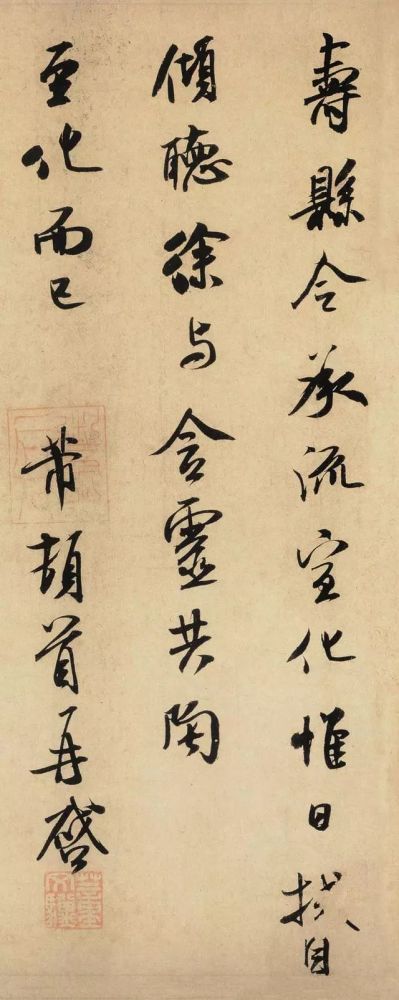 壽縣令承流宣化惟日拭目
傾聽徐與含靈共陶
至化而已　芾頓首再啓